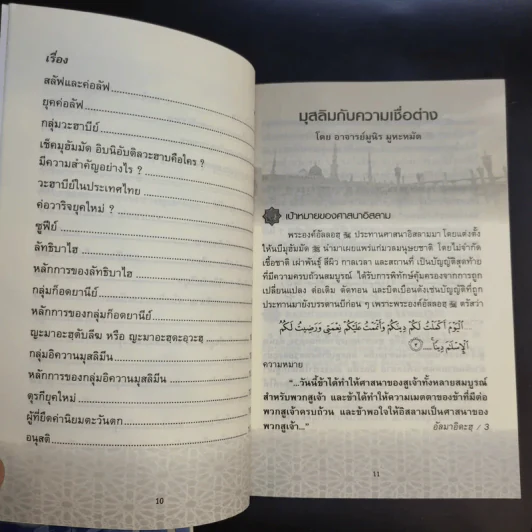 เรื่อง
สลัฟและค่อลัฟ
ยุคค่อลัฟ
กลุ่มวะฮาบีย์
เช็คมุฮัมมัด อิบนิอับดิลวะฮาบคือใคร ?
มีความสำคัญอย่างไร ?
วะฮาบีย์ในประเทศไทย
ค่อวาริจยุคใหม่ ?
ซูฟีย์
ลัทธิบาไฮ
หลักการของลัทธิบาไฮ
กลุ่มก็อดยานีย์
หลักการของกลุ่มก็อดยานีย์
ญะมาอะฮฺตับลีฆ หรือ ญะมาอะฮฺดะอฺวะฮฺ
กลุ่มอิควานมุสลิมีน
หลักการของกลุ่มอิควานมุสลิมีน
ตุรกียุคใหม่
ผู้ที่ยึดค่านิยมตะวันตก
อนุสติ
10
มุสลิมกับความเชื่อต่าง
โดย อาจารย์มูนีร มูหะหมัด
เป้าหมายของศาสนาอิสลาม
พระองค์อัลลอฮฺ ประทานศาสนาอิสลามมา โดยแต่งตั้ง
ให้นบีมุฮัมมัด ﷺ นำมาเผยแพร่แก่มวลมนุษยชาติ โดยไม่จำกัด
เชื้อชาติ เผ่าพันธุ์ สีผิว กาลเวลา และสถานที่ เป็นบัญญัติสุดท้าย
ที่มีความครบถ้วนสมบูรณ์ ได้รับการพิทักษ์คุ้มครองจากการถูก
เปลี่ยนแปลง ต่อเติม ตัดทอน และบิดเบือนดังเช่นบัญญัติที่ถูก
ประทานมายังบรรดานบีก่อน ๆ เพราะพระองค์อัลลอฮฺ ตรัสว่า
اَلْيَوْمَ أَكْمَلْتُ لَكُمْ دِينَكُمْ وَأَتْمَمْتُ عَلَيْكُمْ نِعْمَتِي وَرَضِيتُ لَكُمُ
الْإِسْلَمَ دِينًا
ความหมาย
“...วันนี้ข้าได้ทำให้ศาสนาของสูเจ้าทั้งหลายสมบูรณ์
สำหรับพวกสูเจ้า และข้าได้ทำให้ความเมตตาของข้าที่มีต่อ
พวกสูเจ้าครบถ้วน และข้าพอใจให้อิสลามเป็นศาสนาของ
พวกสูเจ้า...”
อัลมาอิดะฮฺ / 3
11